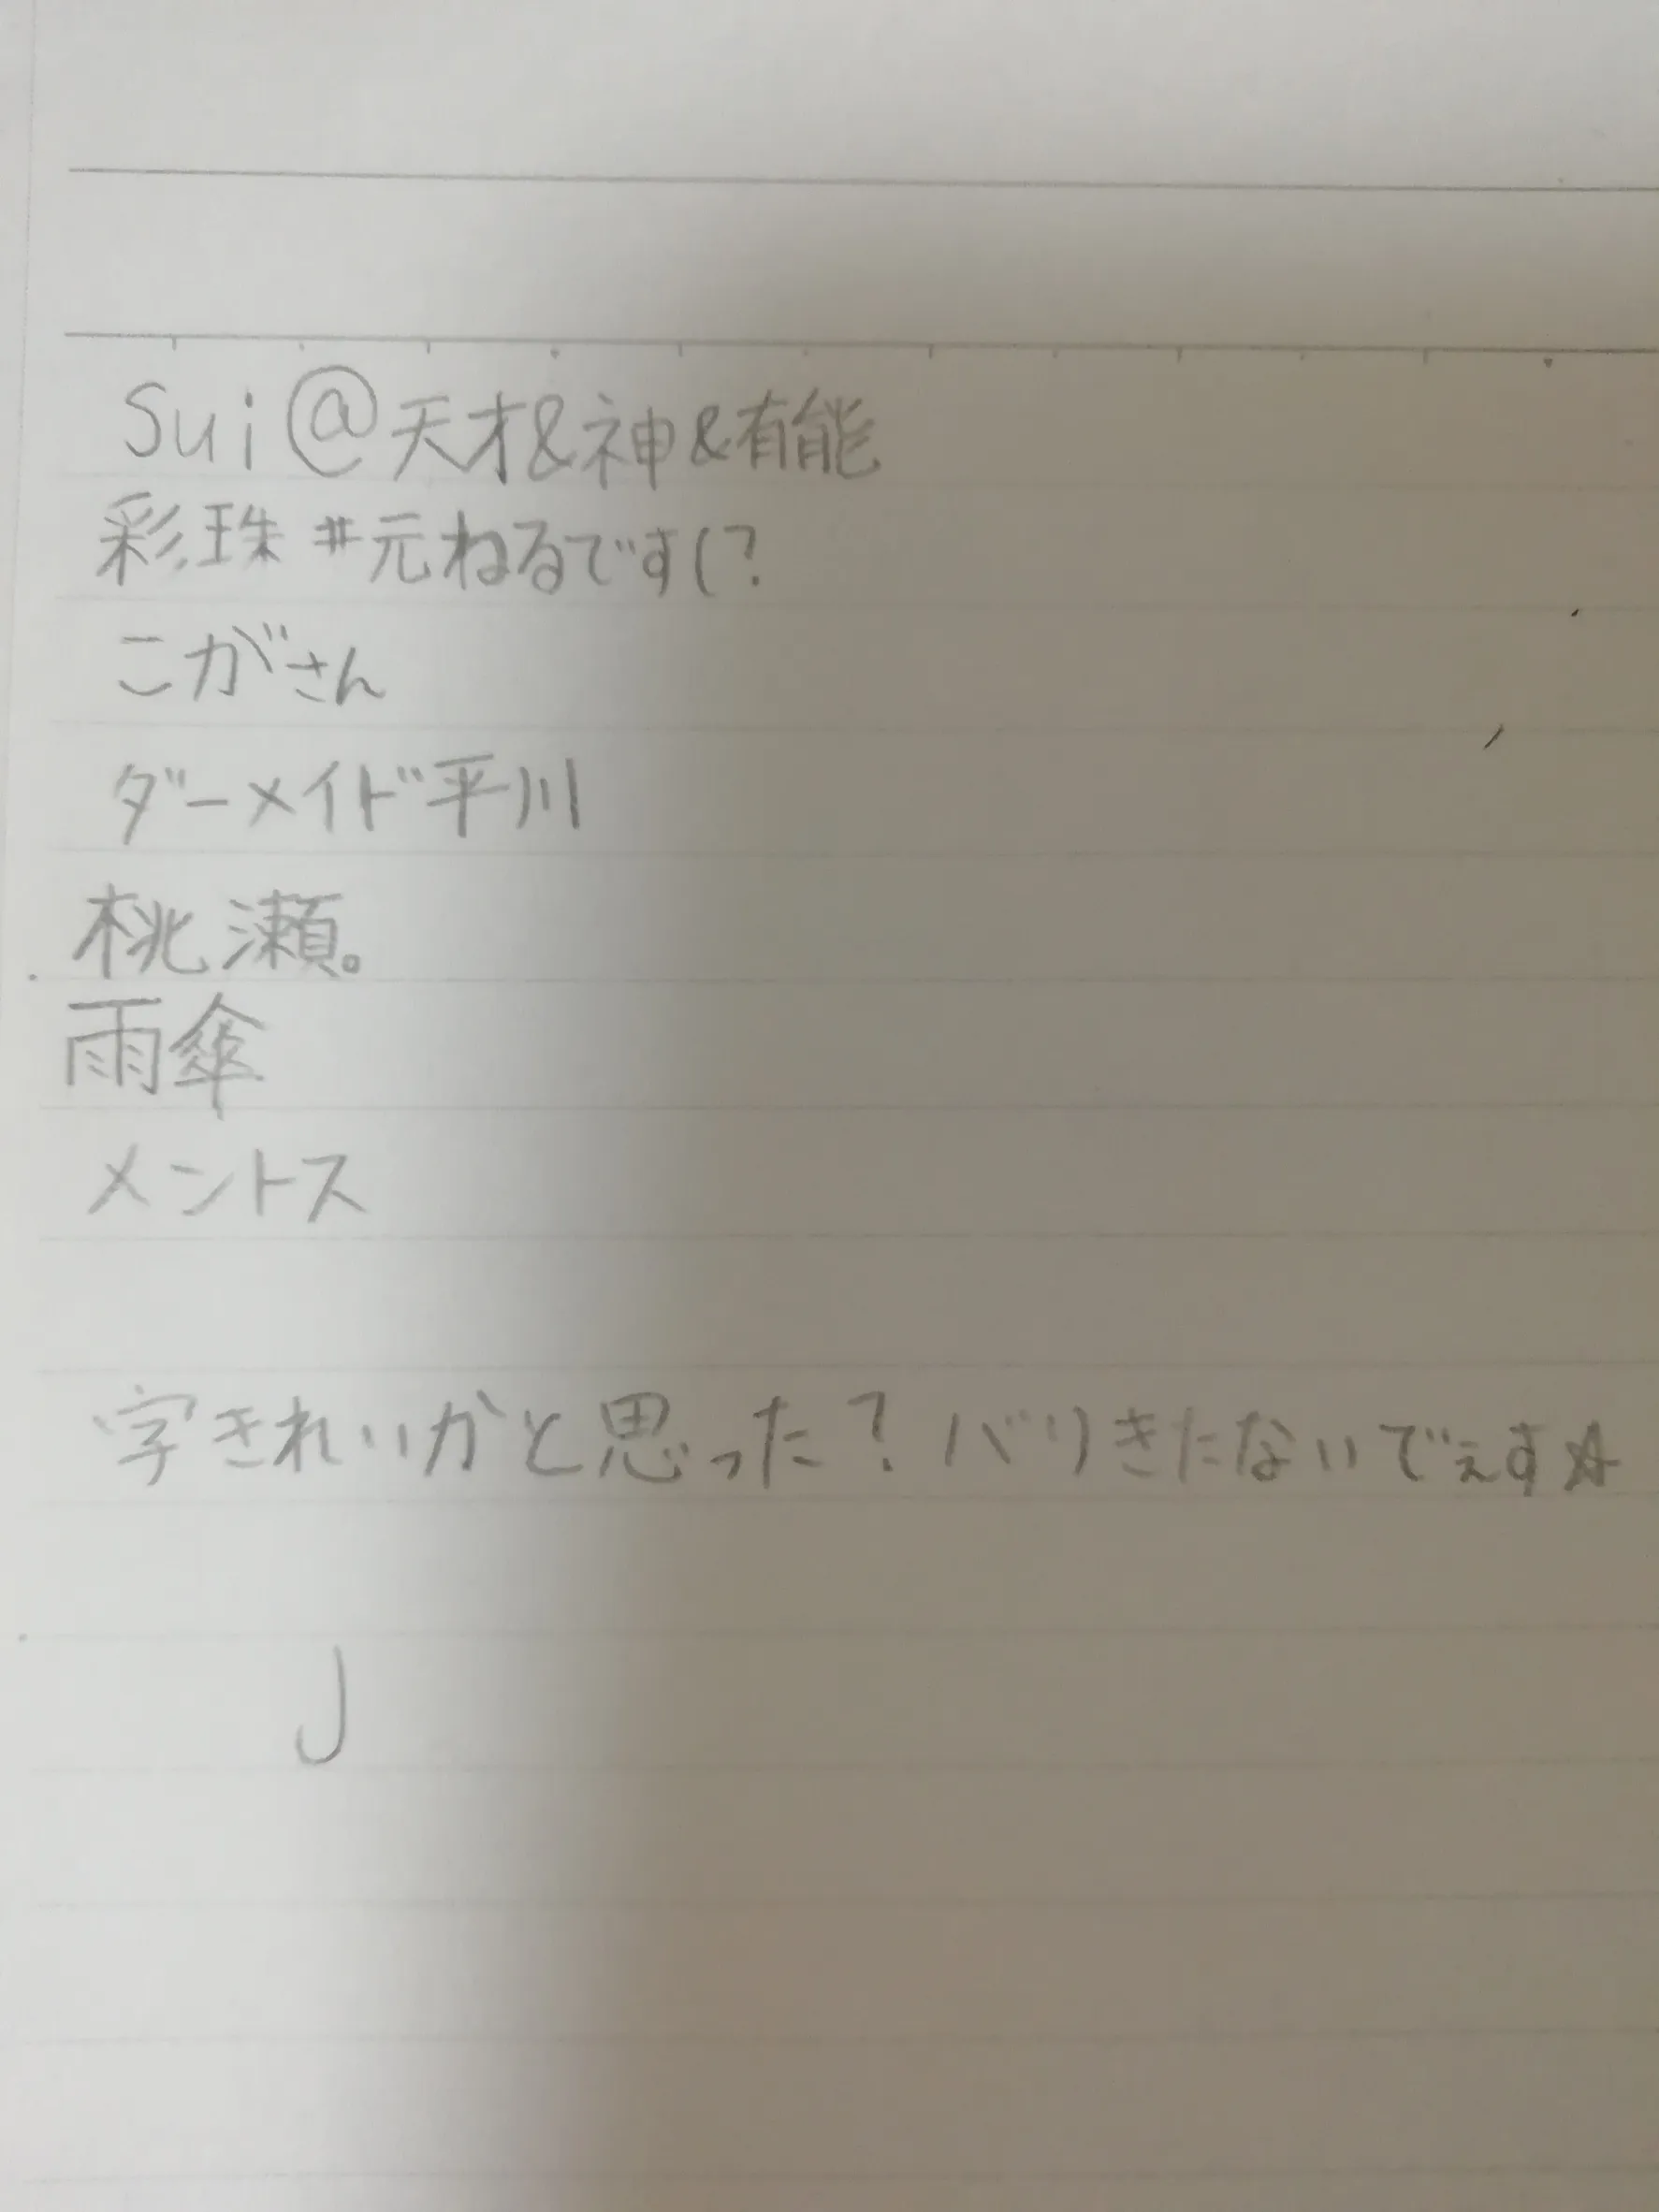 Sui@天才&神&有能
彩珠#元ねるです(?
こがさん
ダーメイド平川
桃瀬。
雨傘
メントス
字きれいかと思った?バリきたないでぇす☆
J